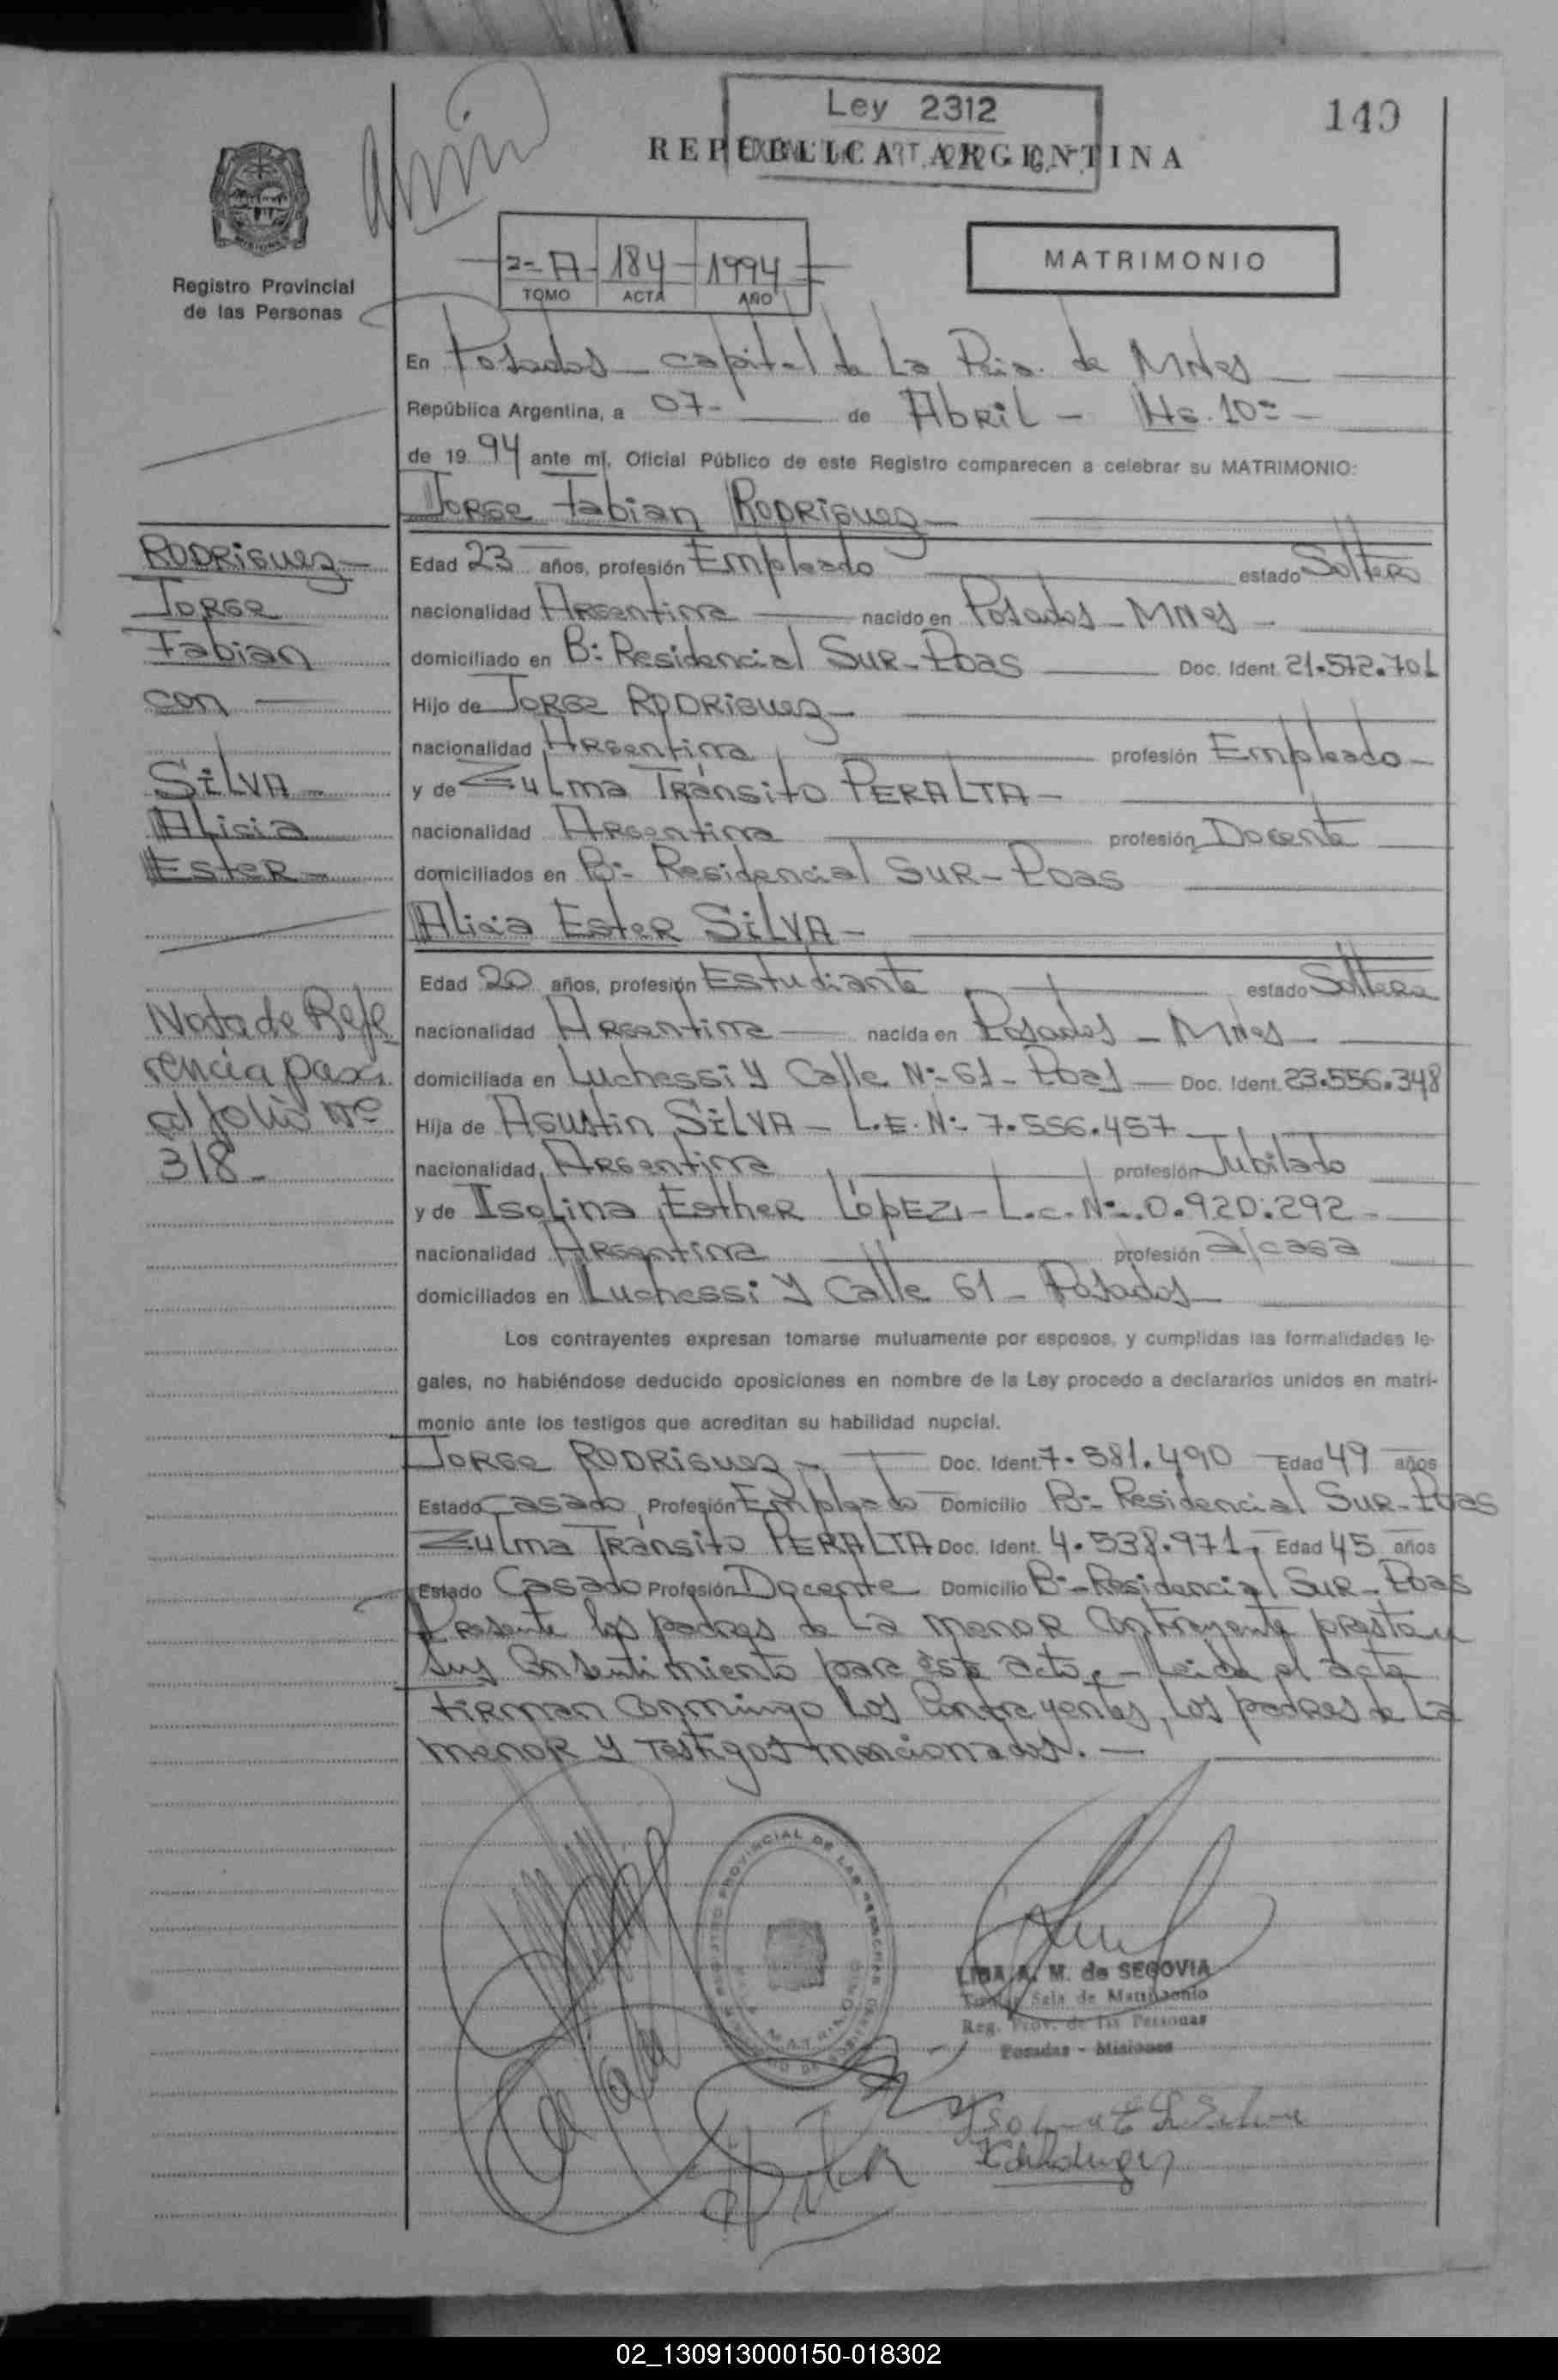 Ley 2312
149
REPUBLICA ARGENTINA
MATRIMONIO
2-A- 184 1994
TOMO ACTA AÑO
Registro Provincial
de las Personas
En Posadas capital de La Pcia. de Mnes
República Argentina, a 07- de Abril - Hs. 10=
de 19 94 ante mí, Oficial Público de este Registro comparecen a celebrar su MATRIMONIO:
Jorge Fabian Rodriguez
Edad 23 años, profesión Empleado estado Soltero
nacionalidad Argentina nacido en Posadas - Mnes
domiciliado en B: Residencial Sur - Pdas Doc. Ident. 21.572.701
Hijo de Jorge Rodriguez
nacionalidad Argentina profesión Empleado
y de Zulma Tránsito PERALTA
nacionalidad Argentina profesión Docente
domiciliados en B:- Residencial Sur - Pdas
Alicia Ester SilVA
Edad 20 años, profesión Estudiante estado Soltera
nacionalidad Argentina nacida en Posadas - Mnes
domiciliada en Luchessi y Calle N:- 61 - Pdas Doc. Ident. 23.556.348
Hija de Agustin SilVA - L.E. N:- 7.556.457
nacionalidad Argentina profesión Jubilado
y de Isolina Esther López - L.C. N:- 0.920.292
nacionalidad Argentina profesión a/casa
domiciliados en Luchessi y Calle 61 - Posadas
Los contrayentes expresan tomarse mutuamente por esposos, y cumplidas las formalidades le-
gales, no habiéndose deducido oposiciones en nombre de la Ley procedo a declararlos unidos en matri-
monio ante los testigos que acreditan su habilidad nupcial.
Jorge Rodriguez Doc. Ident. 7.581.490 Edad 49 años
Estado Casado, Profesión Empleado Domicilio B:- Residencial Sur - Pdas
Zulma Tránsito PERALTA Doc. Ident. 4.538.971, Edad 45 años
Estado Casado Profesión Docente Domicilio B:- Residencial Sur - Pdas
Presente los padres de La menor Contrayente prestan
sus Consentimiento para este acto. - Leida el acta
firman Conmingo los Contrayentes, los padres de La
menor y Testigos mencionados.
RODRiguez
Jorge
Fabian
con
SilVA
Alisia
Ester
Nota de Refe
rencia pasa
al folio Nº
318
LIBA A. M. de SEGOVIA
Sala de Matrimonio
Reg. Prov. de las Personas
Posadas - Misiones
02_130913000150-018302